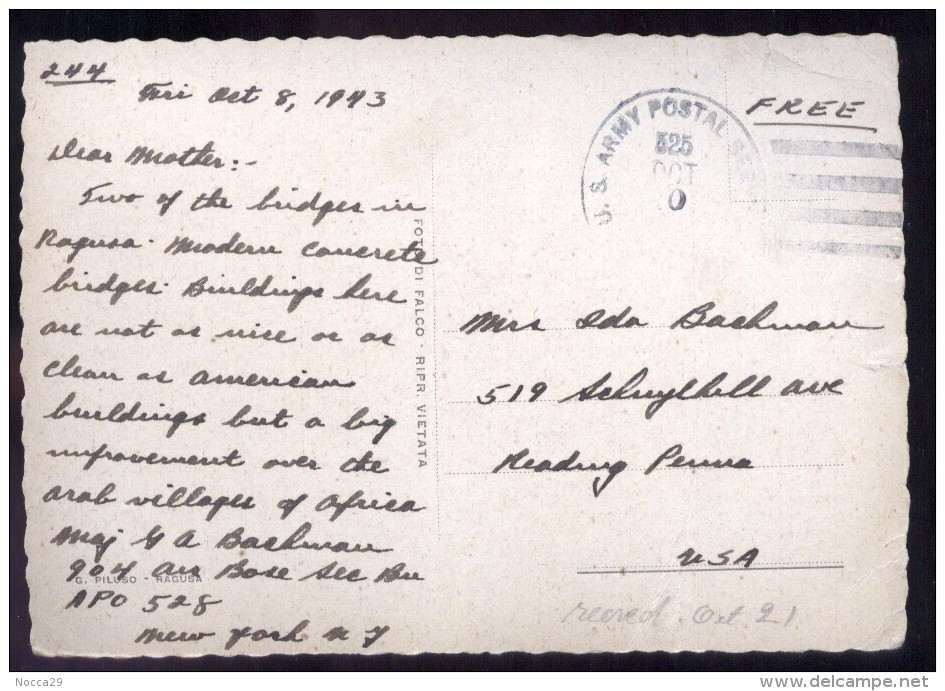 244
Fri Oct 8, 1943
Dear Mother:-
Two of the bridges in
Ragusa. Modern concrete
bridges. Buildings here
are not as nise or as
clean as American
buildings but a big
improvement over the
arab villages of Africa
Maj G A Bachman
904 Air Base Sec
G. PILUSO - RAGUSA
APO 528
New York N Y
FOTO DI FALCO - RIPR. VIETATA
U. S. ARMY POSTAL
525
OCT
FREE
Mrs Ida Bachman
519 Schuylkill Ave
Reading Penna
USA
Oct 21
Nocca29
www.delcampe.net